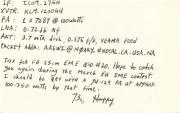 IF: ICOM 271H
XVTR: KLM 1200HU
PA: L x 7289 @ 600 watts
LNA: 0.72 db NF
ANT: 3.7 mtr dish, 0.375 f/D, VE4MA FEED
Packet addr: AA6WI@N0ARY.#NOCAL.CA.USA.NA
Tnx for CQ 23cm EME QSO #20. Hope to catch
you again during the March EU EME contest
I should be QRV with a 7289 PA at approx
300-350 watts by that time.
73, Happy